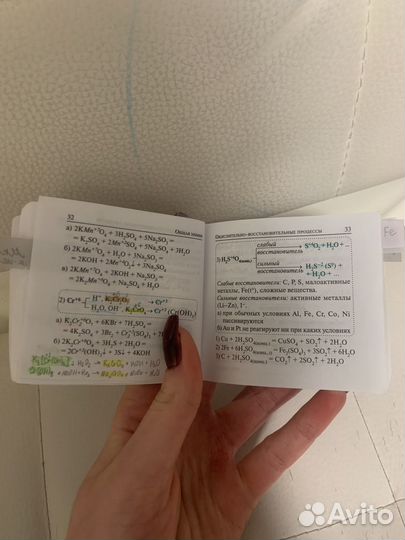 32 Общая химия
а) 2KMn⁺⁷O₄ + 3H₂SO₄ + 5Na₂SO₃ =
= K₂SO₄ + 2Mn⁺²SO₄ + 5Na₂SO₄ + 3H₂O
б) 2KMn⁺⁷O₄ + H₂O + 3Na₂SO₃ =
= 2KOH + 2Mn⁺⁴O₂↓ + 3Na₂SO₄
в) 2KMn⁺⁷O₄ + 2KOH + Na₂SO₃ =
= 2K₂Mn⁺⁶O₄ + Na₂SO₄ + H₂O
2) Cr⁺⁶ H⁺, K₂Cr₂O₇ → Cr⁺³
H₂O, OH⁻, K₂CrO₄ → Cr⁺³ (Cr(OH)₃)
а) K₂Cr₂⁺⁶O₇ + 6KBr + 7H₂SO₄ =
= 4K₂SO₄ + 3Br₂ + Cr₂⁺³(SO₄)₃ +
= 2Cr⁺³(OH)₃↓ + 3S↓ + 4KOH
Окислительно-восстановительные процессы 33
3) H₂S⁺⁶O₄(конц.)
слабый восстановитель → S⁺⁴O₂ + H₂O + ...
сильный восстановитель → H₂S⁻² (S⁰) + H₂O + ...
Слабые восстановители: C, P, S, малоактивные
металлы, Fe(II), сложные вещества.
Сильные восстановители: активные металлы
(Li–Zn), I⁻.
а) при обычных условиях Al, Fe, Cr, Co, Ni
пассивируются
б) Au и Pt не реагируют ни при каких условиях
1) Cu + 2H₂SO₄(конц.) = CuSO₄ + SO₂↑ + 2H₂O
2) 2Fe + 6H₂SO₄(конц.) = Fe₂(SO₄)₃ + 3SO₂↑ + 6H₂O
3) C + 2H₂SO₄(конц.) = CO₂↑ + 2SO₂↑ + 2H₂O
Fe
Avito